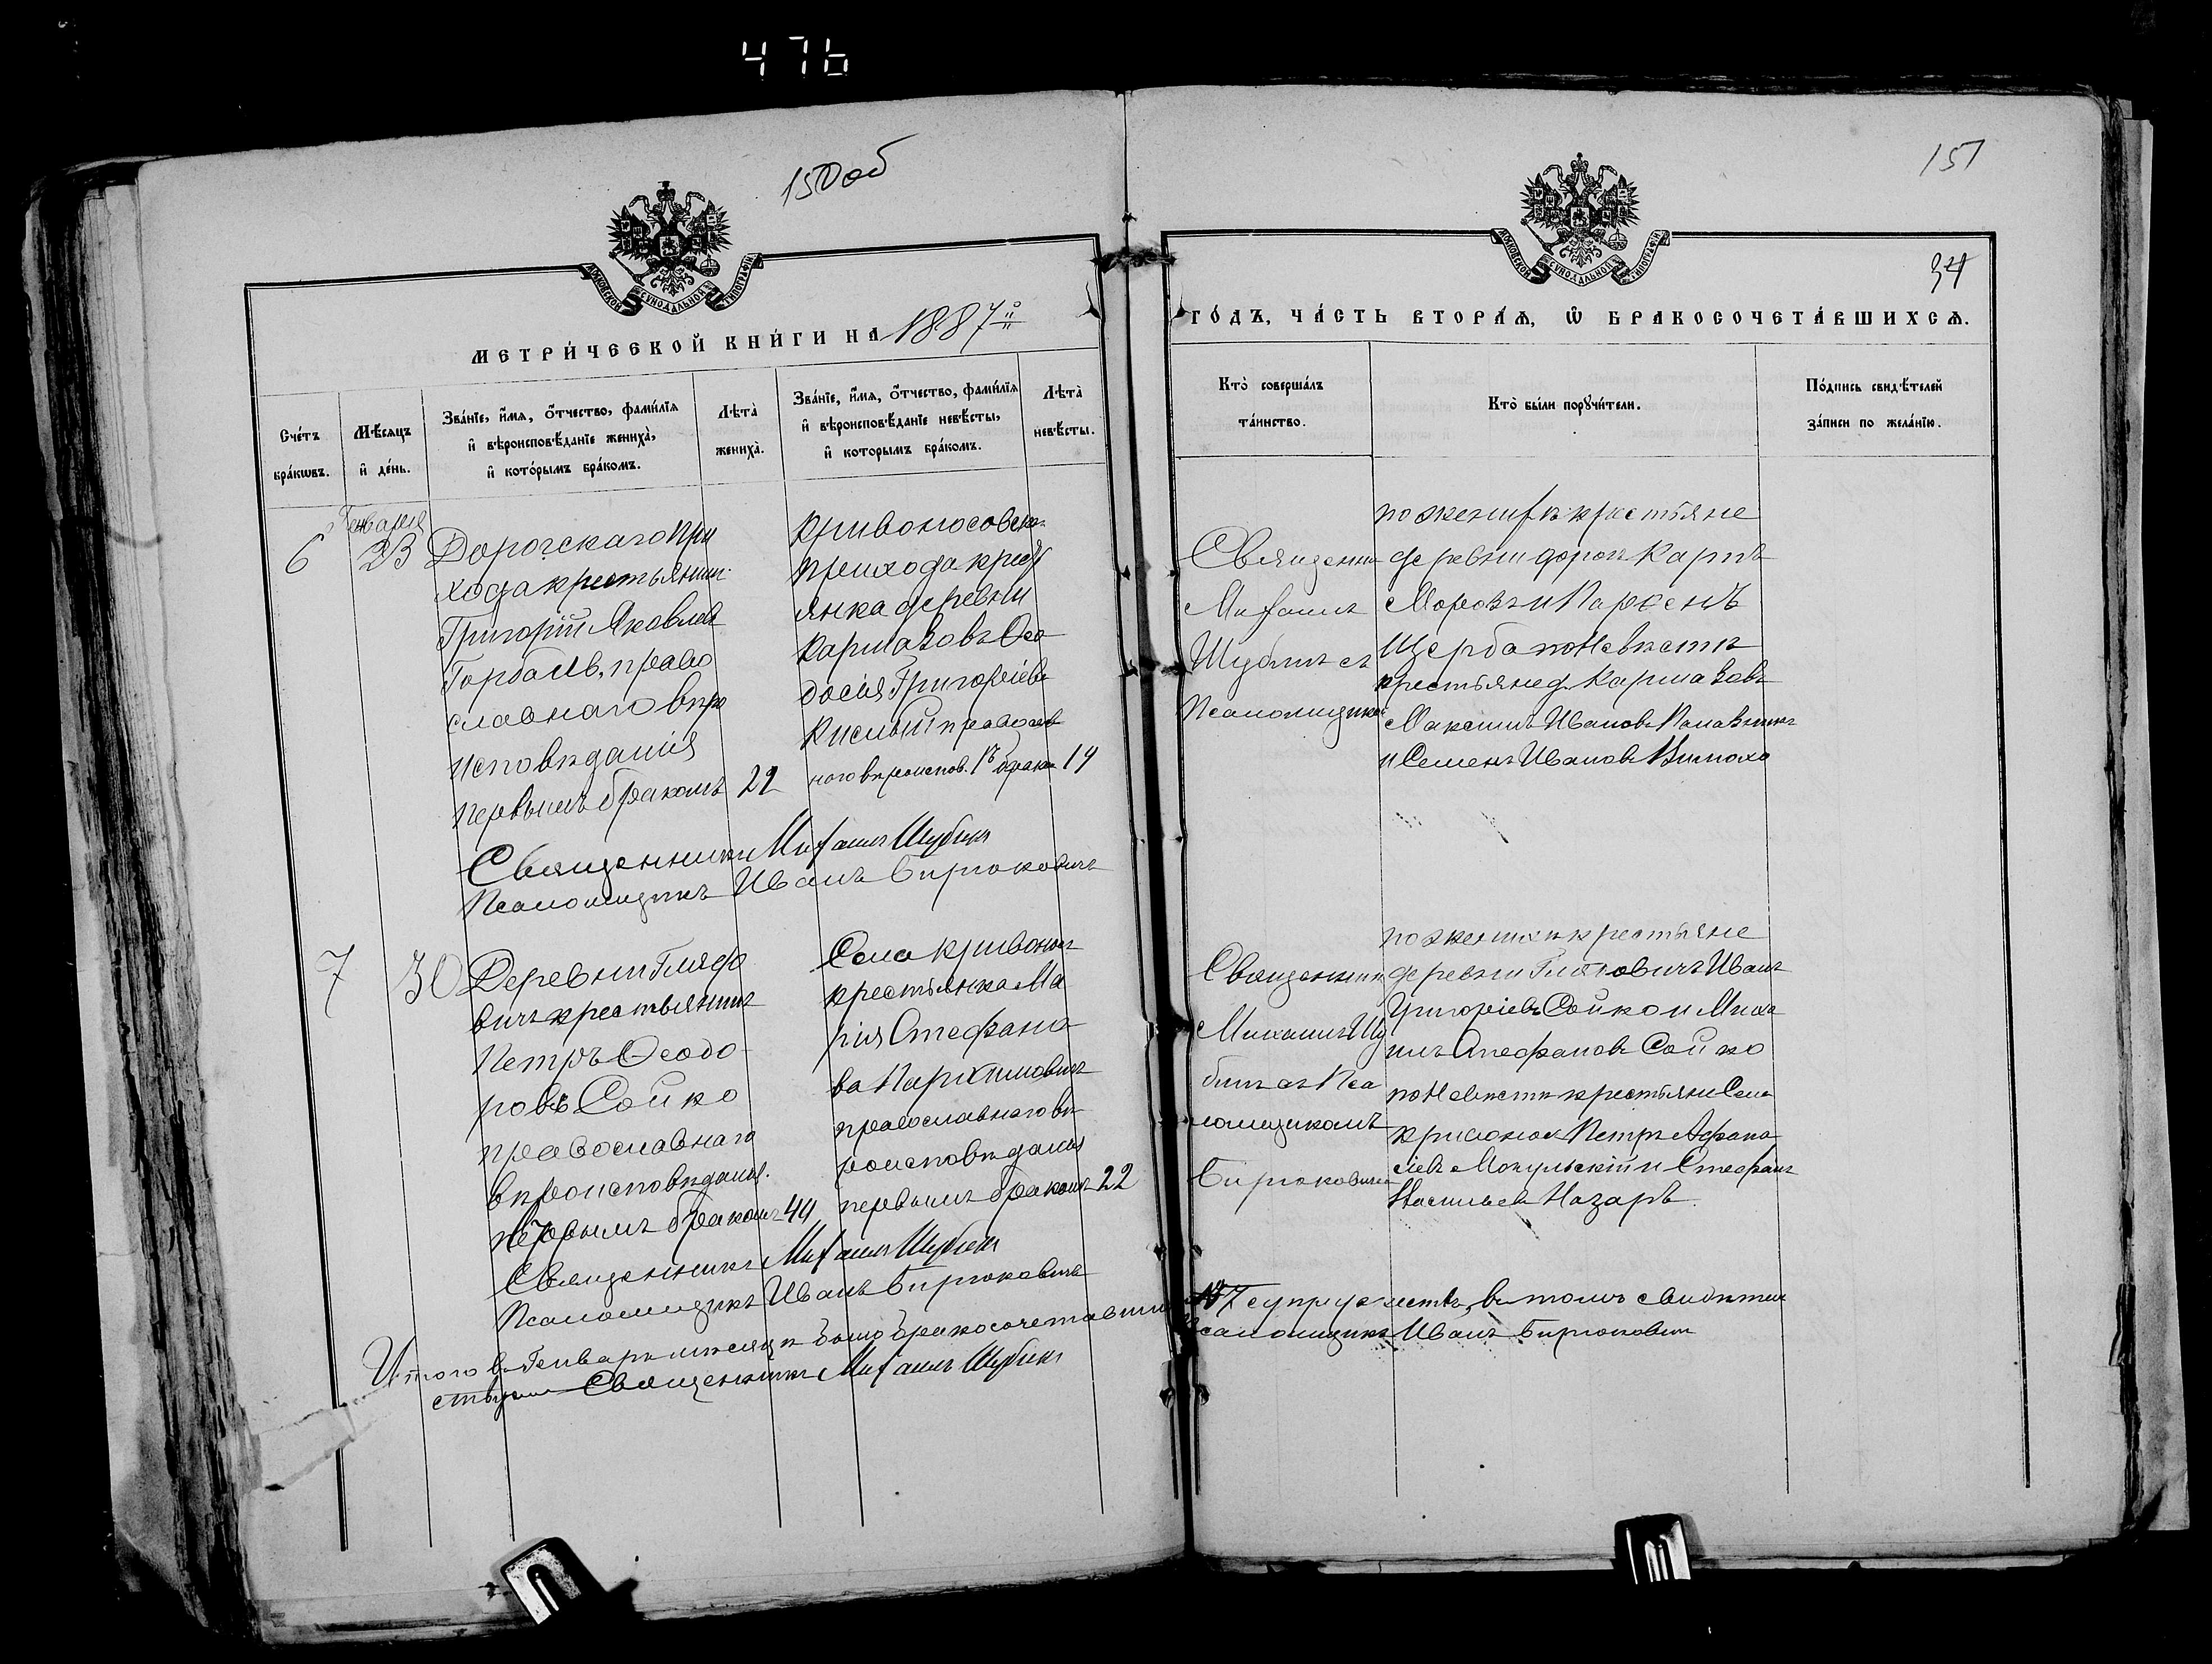 476
150об
МОСКОВСКОЙ СУНОДАЛЬНОЙ ТИПОГРАФІИ
МЕТРИ́ЧЕСКОЙ КНИ́ГИ НА 1887й
Сче́тъ бра́кѡвъ.
Мѣ́сяцъ и҆ де́нь.
Зва́нїе, и҆́мѧ, ѻ҆́тчество, фамилїѧ
и҆ вѣроисповѣ́данїе жениха̀,
и҆ кото́рымъ бра́комъ.
Лѣта̀
жениха̀.
Зва́нїе, и҆́мѧ, ѻ҆́тчество, фамилїѧ
и҆ вѣроисповѣ́данїе невѣ́сты,
и҆ которымъ бракомъ.
Лѣта̀
невѣ́сты.
6
Генваря
23
Дорогскаго при
хода крестьянинъ
Григорій Яковлев
Горбачъ, право
славнаго вѣро
исповѣданія
первымъ бракомъ 22
Кривоносовска
прихода крест
янка деревни
Каршаковъ Ѳео
досія Григоріева
Кислый православ
ного вѣроиспов. 1в бракъ 19
Священникъ Михаилъ Шубинъ
Псаломщикъ Иванъ Бирюковичъ
7
30
Деревни Глядо
вичъ крестьянинъ
Петръ Ѳеодо
ровъ Сойко
православнаго
вѣроисповѣданія.
первымъ бракомъ 44
Села Кривонос
крестьянка Ма
рія Стефано
ва Пархимовичъ
православнаго вѣ
роисповѣданія
первымъ бракомъ 22
Священникъ Михаилъ Шубинъ
Псаломщикъ Иванъ Бирюковичъ
Итого в Генварѣ мѣсяцѣ было бракосочетавши
Священникъ Михаилъ Шубинъ
151
МОСКОВСКОЙ СУНОДАЛЬНОЙ ТИПОГРАФІИ
34
ГО́ДЪ, ЧА́СТЬ ВТОРА́Ѧ, Ѽ БРАКОСОЧЕТА́ВШИХСѦ.
Кто̀ соверша́лъ
та́инство.
Кто̀ бы́ли порꙋчи́тели.
По́дпись свидѣ́телей
за́писи по жела́нїю.
Священник
Михаилъ
Шубинъ съ
Псаломщикомъ
по женихѣ крестьяне
деревни дорогъ Карпъ
Морозъ и Парфенъ
Щерба по Невѣстѣ
крестьяне д. Каршаковъ
Максимъ Ивановъ
и Семенъ Ивановъ
Священник
Михаилъ Шу
бинъ съ Пса
ломщикомъ
Бирюковичемъ
по женихѣ крестьяне
деревни Глядовичъ Иванъ
Григоріевъ Сойко и Миха
илъ Стефановъ Сойко
по Невѣстѣ крестьяне Села
Кривонос Петръ Афана
сіевъ Мокульскій и Стефанъ
Васильев Назаръ.
7 супружествъ, въ томъ свидѣтел
Псаломщикъ Иванъ Бирюкович